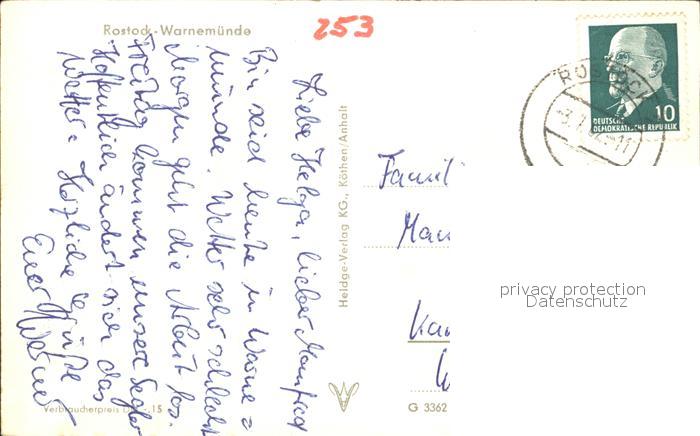 Rostock-Warnemünde
253
Liebe Helga, lieber Manfred
Bin seid heute in Warne=
münde. Wetter sehr schlecht
Morgen geht die Arbeit los.
Freitag kommen unsere Segler
Hoffentlich ändert sich das
Wetter. Herzliche Grüße
Euer Werner
Verbraucherpreis -,15
Heldge-Verlag KG., Köthen/Anhalt
G 3362
ROSTOCK
10
DEUTSCHE
DEMOKRATISCHE REPUBLIK
Famil
Man
privacy protection
Datenschutz